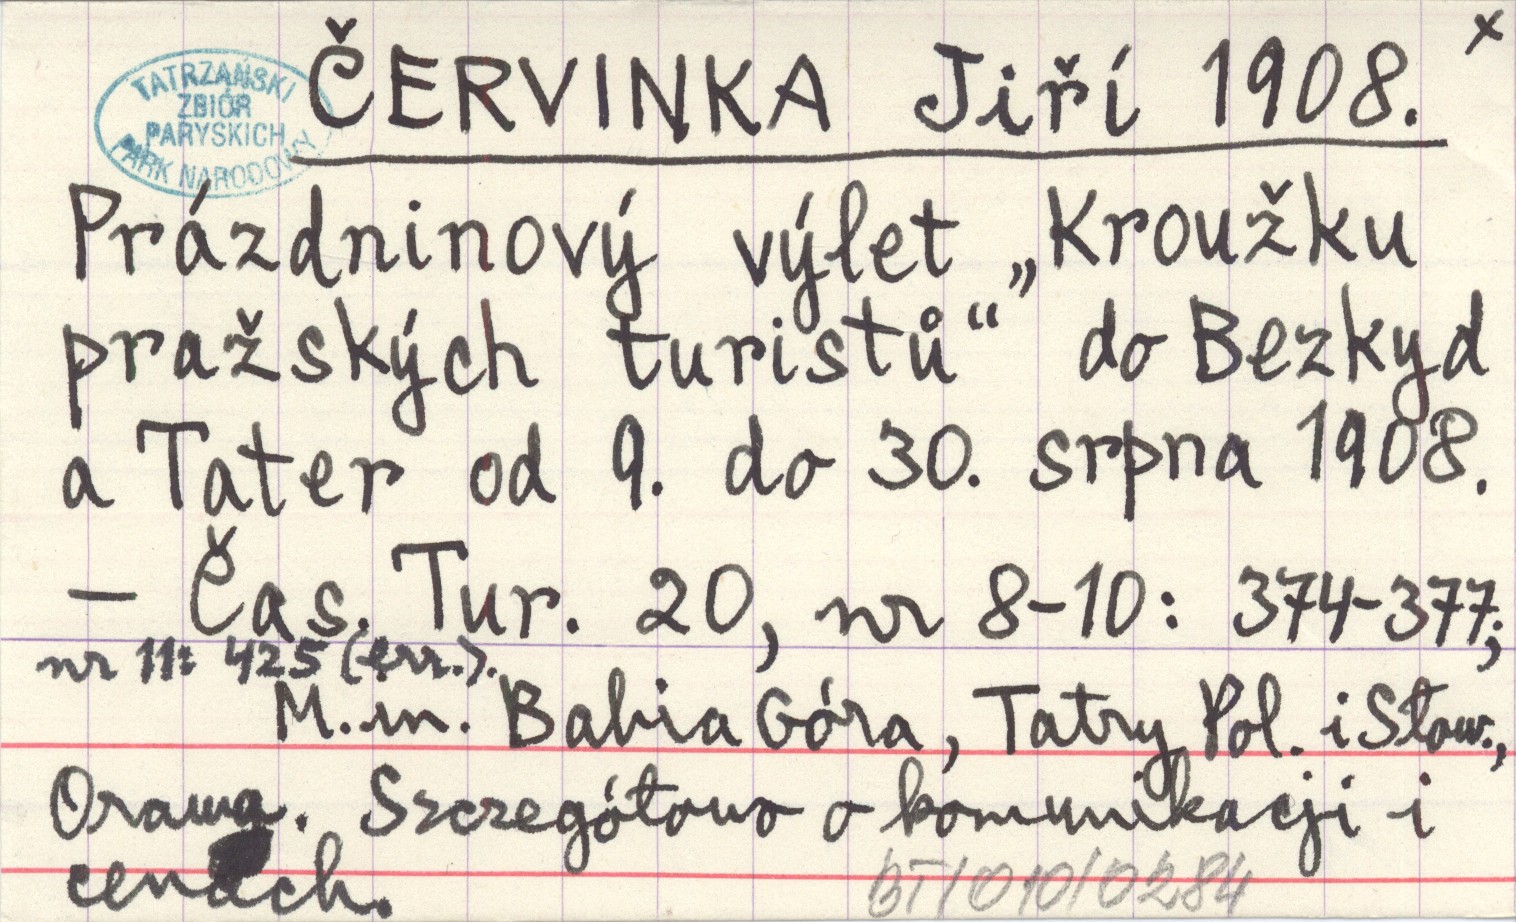 x
ČERVINKA Jiří 1908.
TATRZAŃSKI
ZBIÓR
PARYSKICH
PARK NARODOWY
Prázdninový výlet „Kroužku
pražských turistů“ do Bezkyd
a Tater od 9. do 30. srpna 1908.
— Čas. Tur. 20, nr 8-10: 374-377;
nr 11: 425 (err.).
M.in. Babia Góra, Tatry Pol. i Słow.,
Orawa. Szczegółowo o komunikacji i
cenach.
BT/010/0284